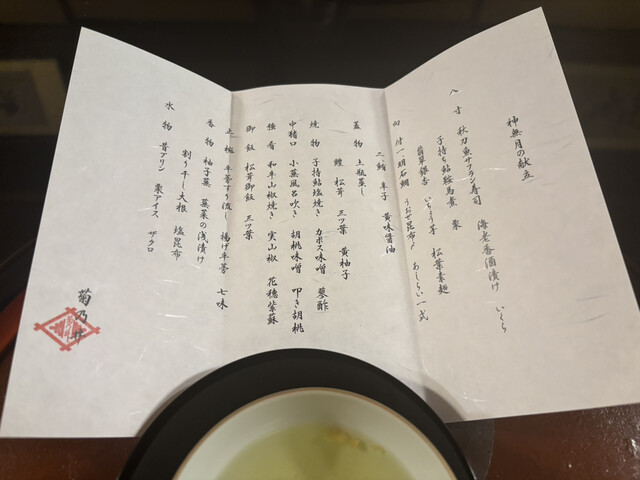 神無月の献立
八寸 秋刀魚サフラン寿司 海老香酒漬け いくら
子持ち鮎鞍馬煮 栗
翡翠銀杏 いちょう芋 松葉素麺
向付 一 明石鯛 うおぜ昆布〆 あしらい一式
二 鮪 辛子 黄味醤油
蓋物 土瓶蒸し
鱧 松茸 三ツ葉 黄柚子
焼物 子持鮎塩焼き カボス味噌 蓼酢
中猪口 小蕪風呂吹き 胡桃味噌 叩き胡桃
強肴 和牛山椒焼き 実山椒 花穂紫蘇
御飯 松茸御飯 三ツ葉
止椀 半菩すり流し 揚げ半菩 七味
香物 柚子蕪 蕪菜の浅漬け
割り干し大根 塩昆布
水物 昔プリン 栗アイス ザクロ
菊乃井